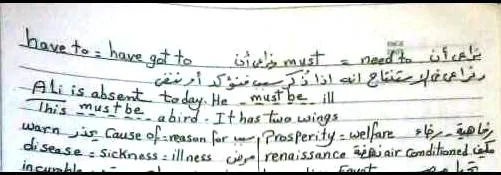 have to = have got to يراعى أن must = need to يراعى أن
ويراعى فى الاستنتاج انه اذا ذكر سبب مؤكد أو منفى
Ali is absent today. He must be ill
This must be a bird. It has two wings
warn يحذر Cause of = reason for سبب Prosperity = welfare رفاهية - رخاء
disease = sickness = illness مرض renaissance نهضة air conditioned مكيف
incurable Egypt